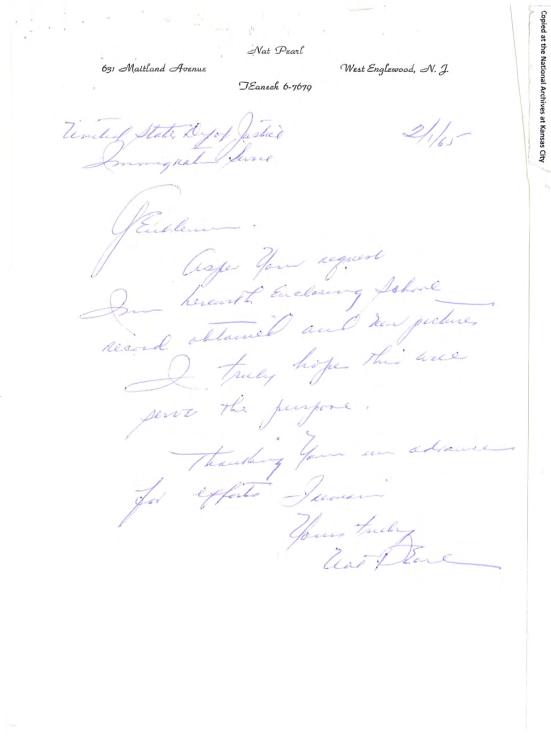 Nat Pearl
631 Maitland Avenue West Englewood, N. J.
TEaneck 6-7679
United State Dep of Justice 2/1/65
Immigrat Serve
Gentlemen.
As per Your request
I am herewith Enclosing School
record obtained and new pictures
I truly hope this will
serve the purpose.
Thanking You in advance
for efforts I remain
Yours truly
Nat Pearl
Copied at the National Archives at Kansas City